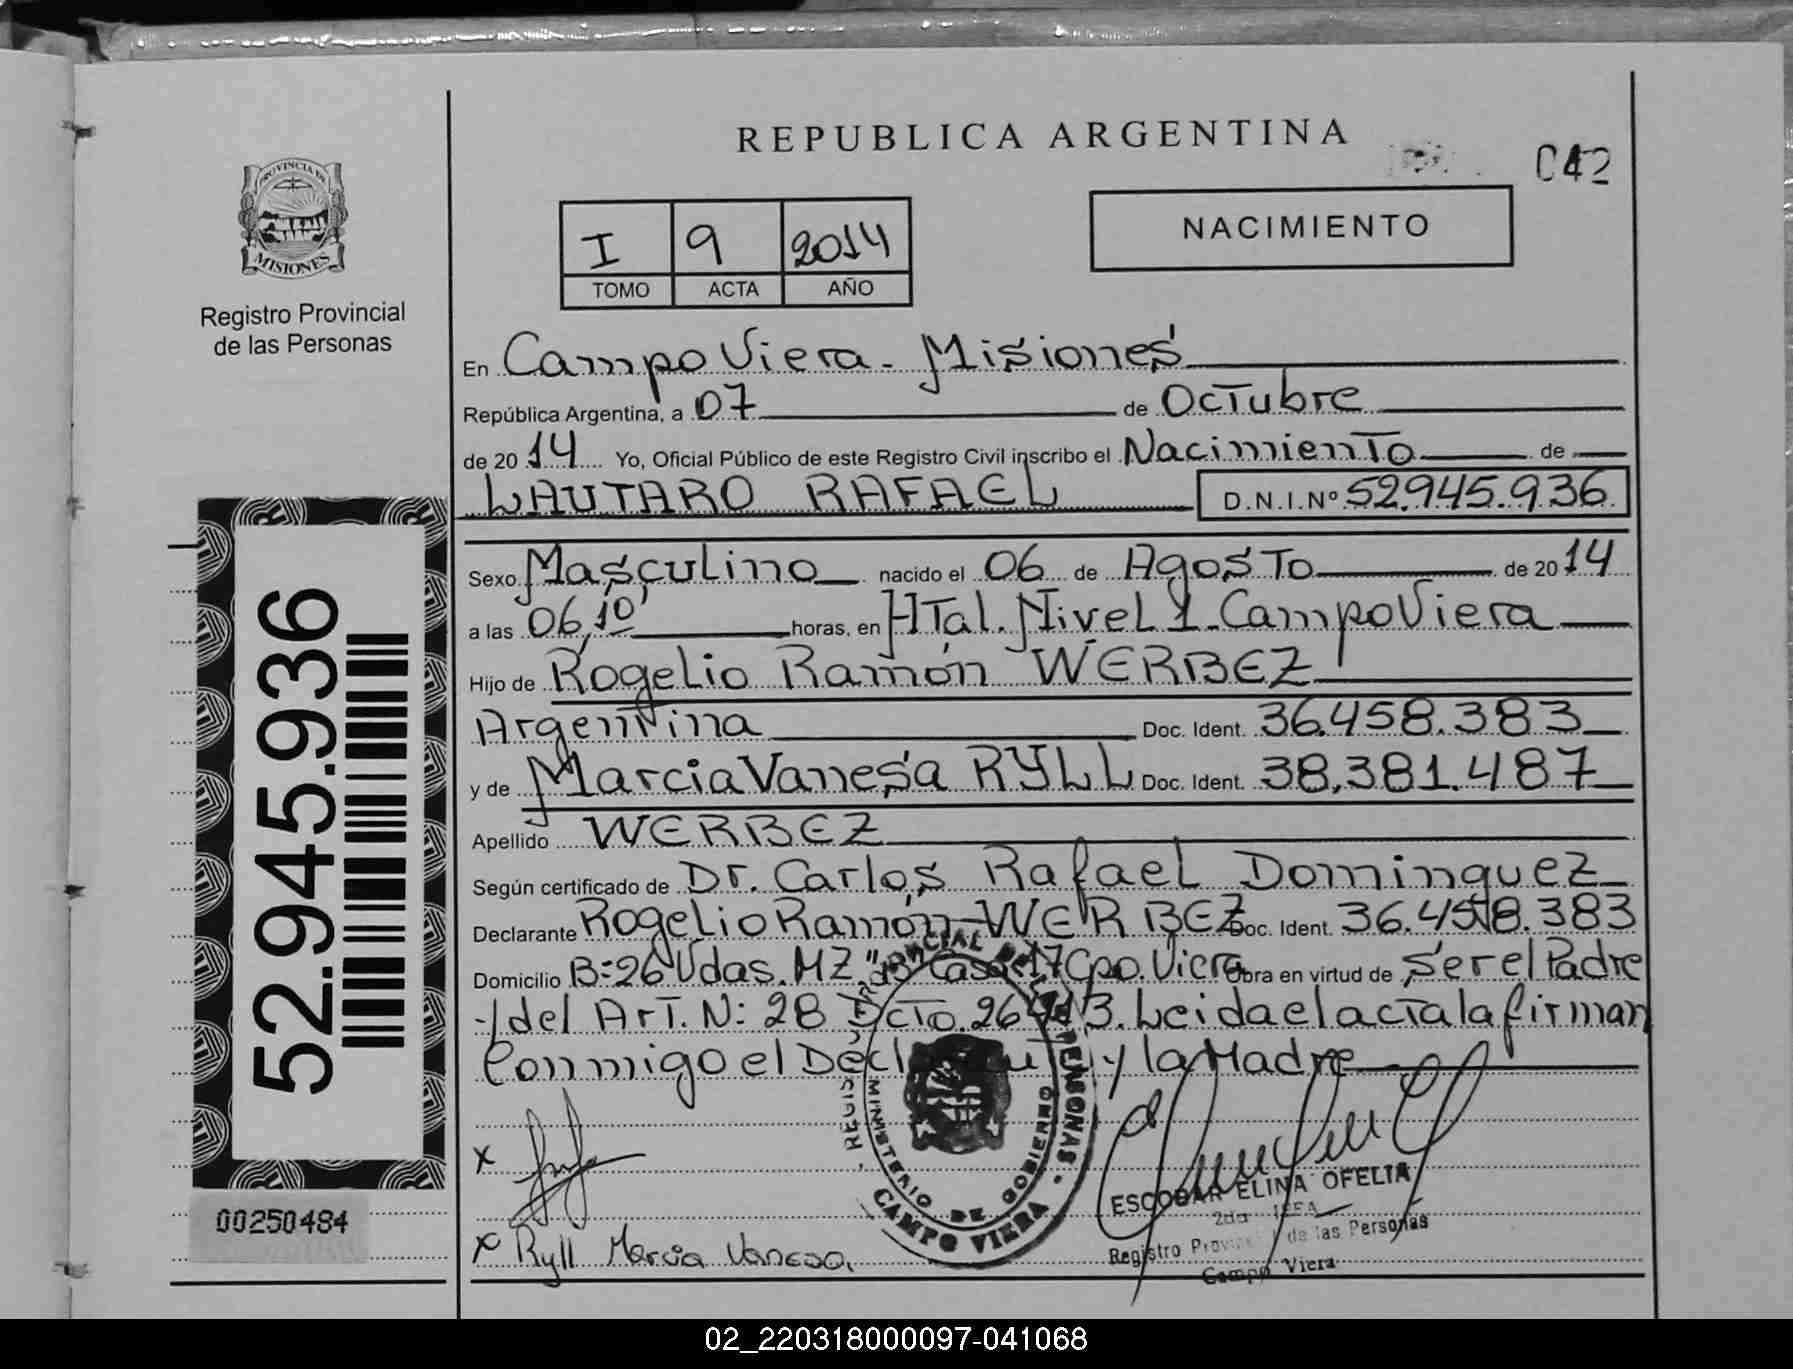 REPUBLICA ARGENTINA
042
PROVINCIA DE
MISIONES
Registro Provincial
de las Personas
I 9 2014
TOMO ACTA AÑO
NACIMIENTO
En Campo Viera - Misiones
República Argentina, a 07 de Octubre
de 2014 Yo, Oficial Público de este Registro Civil inscribo el Nacimiento de
LAUTARO RAFAEL D.N.I.Nº 52.945.936
Sexo Masculino nacido el 06 de Agosto de 2014
a las 06,10' horas, en HTal. Nivel 1. Campo Viera
Hijo de Rogelio Ramón WERBEZ
Argentina Doc. Ident. 36.458.383
y de Marcia Vanesa RYLL Doc. Ident. 38.381.487
Apellido WERBEZ
Según certificado de Dr. Carlos Rafael Dominguez
Declarante Rogelio Ramón WERBEZ Doc. Ident. 36.458.383
Domicilio B: 26 Vdas. MZ "B" Casa 17 Cpo. Viera Obra en virtud de ser el Padre
-/del Art. N: 28 Dcto. 26413. Leida el acta la firman
Conmigo el Declarante y la Madre
52.945.936
00250484
x
x Ryll Marcia Vanesa.
MINISTERIO DE GOBIERNO
CAMPO VIERA
ESCOBAR ELINA OFELIA
Registro Provincial de las Personas
Campo Viera
02_220318000097-041068